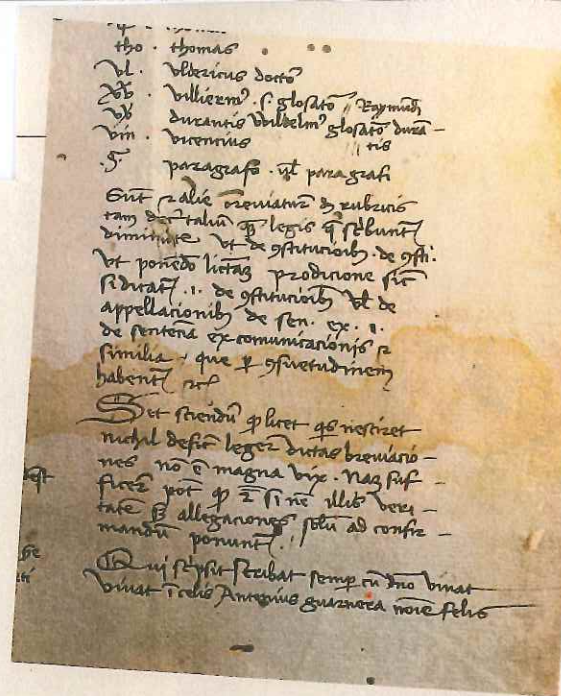 tho · thomas
vl · vldericus docto᷒
villierm᷒ · s · glosato᷒ // Raymūd
durantis vvildelm᷒ glosato᷒ durā –
vin · vicencius // tis
·§· paragrafo · vl̄ paragrafi
Sunt et alie breviatur̄ rubricis
tam decr̄talium qm̄ legis q̄ scribunt᷒
diminute vt de ꝯstitucioībꝫ · de ꝯsti:
vt ponēdo lictaꝫ prodicione sic̄
si dicat᷒ · i · de ꝯstitucioībꝫ vl̄ de
appellacionibꝫ de sen · ex · i ·
de sentēcia excomunicacionis et
similia · que ꝑ ꝯsuetudinem
habent᷒ rc̄
Set sciendū ꝙ licet qͥs nesciret
nichil defic̄ leger̄ dictas breviacio –
nes nō ē magna vix · Naꝫ suf –
ficer̄ pōt ꝙ si nē illis veri –
tate allegaciones solū ad confir –
mandū ponunt᷒ · //
Qui scͥpsit scribat semꝑ cū dn̄o vivat
vivat ī celis Antonius guarnera noīe felis